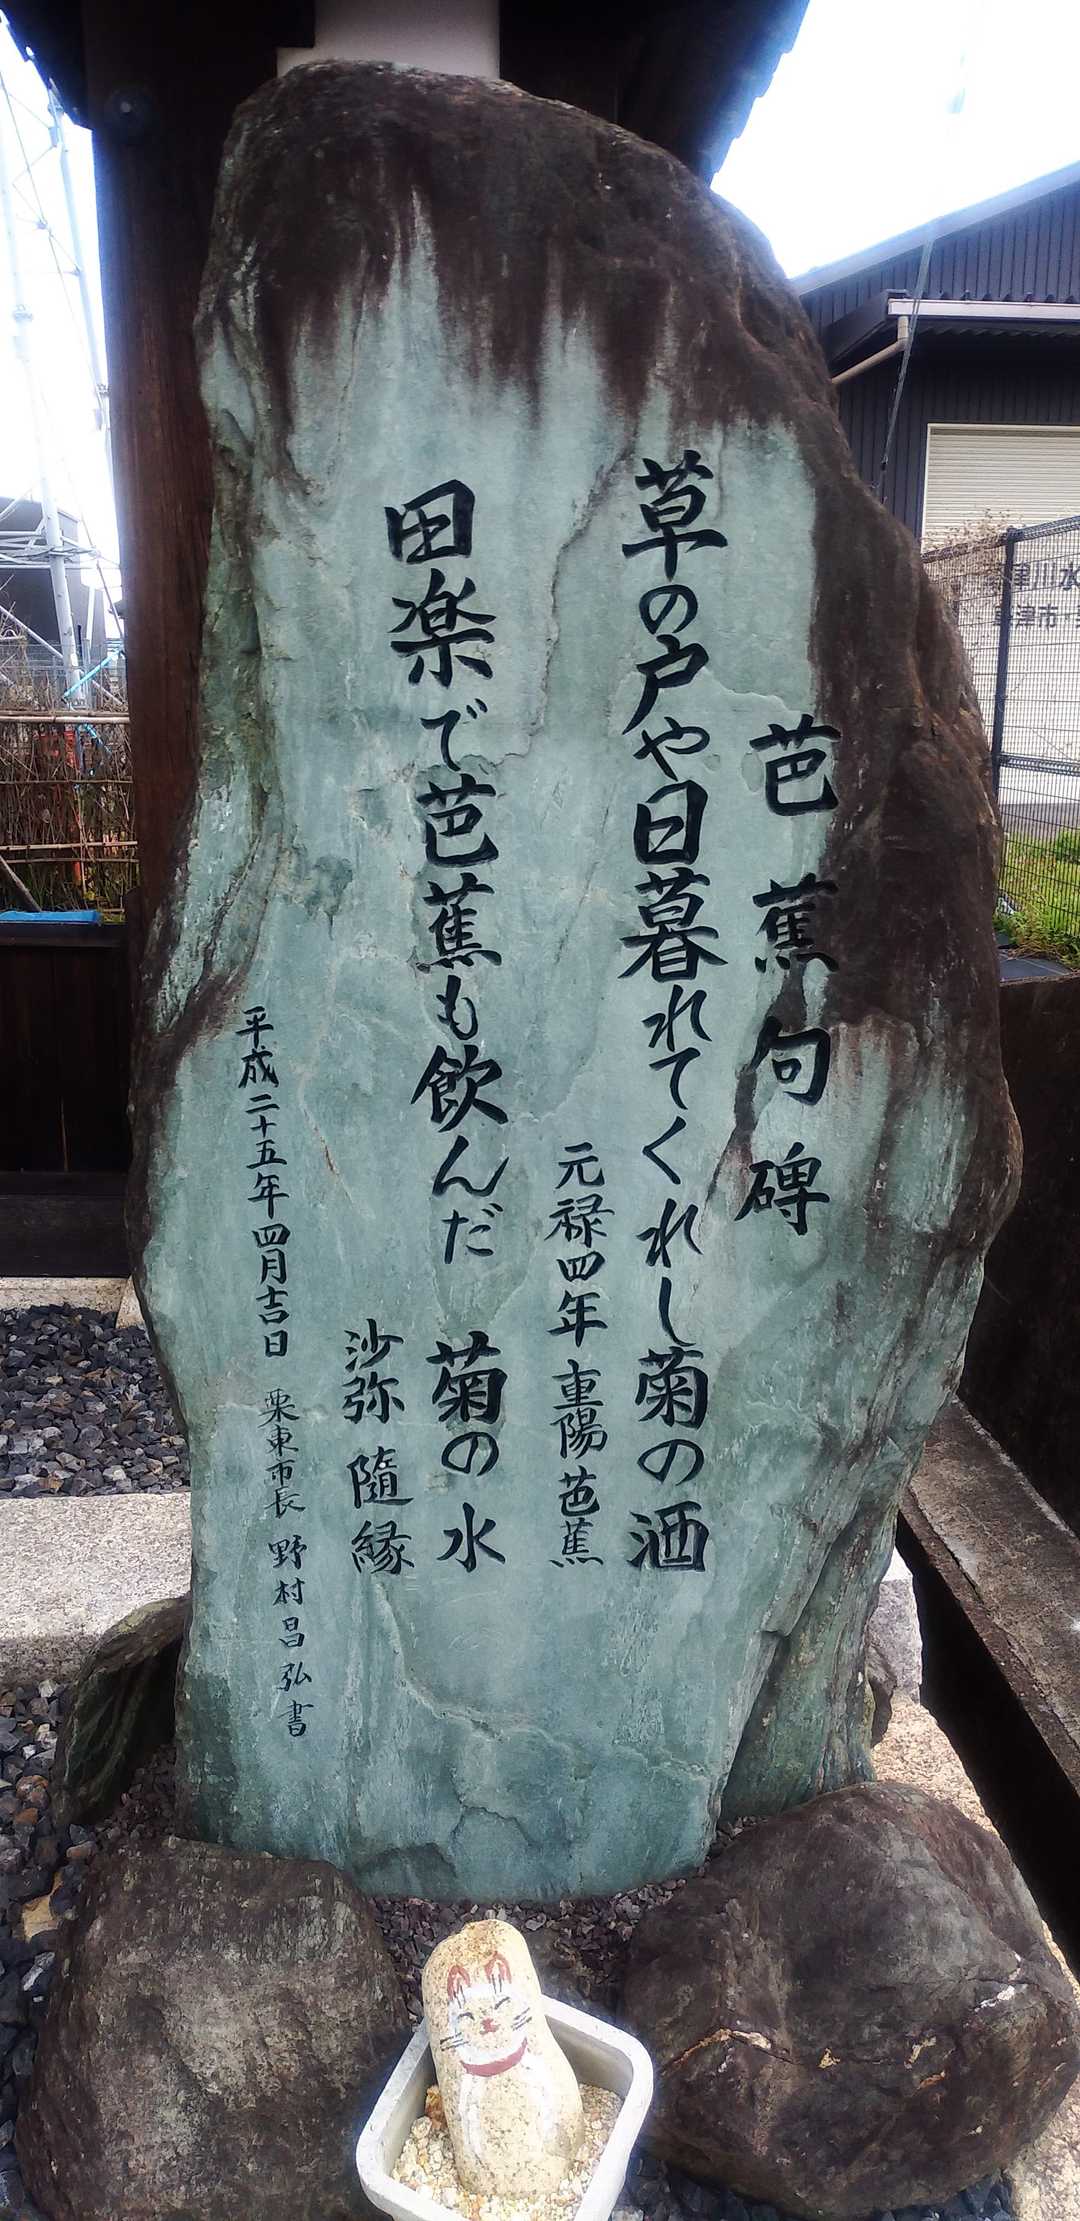 芭蕉句碑
草の戸や日暮れてくれし菊の酒
元禄四年 重陽芭蕉
田楽で芭蕉も飲んだ 菊の水
沙弥 隨縁
平成二十五年四月吉日 栗東市長 野村昌弘書
津川水
津市